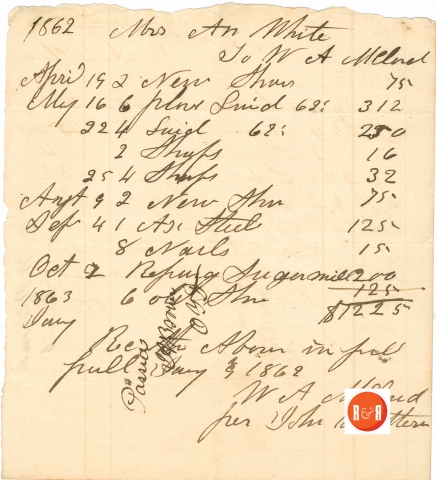 1862 Mrs An White
To W A McCloud
April 19 2 New Shoes 75
May 16 6 plow Laid 62½ 312
22 4 Laid 62½ 250
2 Sharps 16
25 4 Sharps 32
Augt 9 2 New Shoe 75
Sep 4 1 Ax Steel 125
8 Nails 15
Oct 2 Repairing Sugar mill 200
1863 6 old Shoe 125
Jany $1225
Rec the Above in full
full Jany 9 1862
W A McCloud
per John
R&R